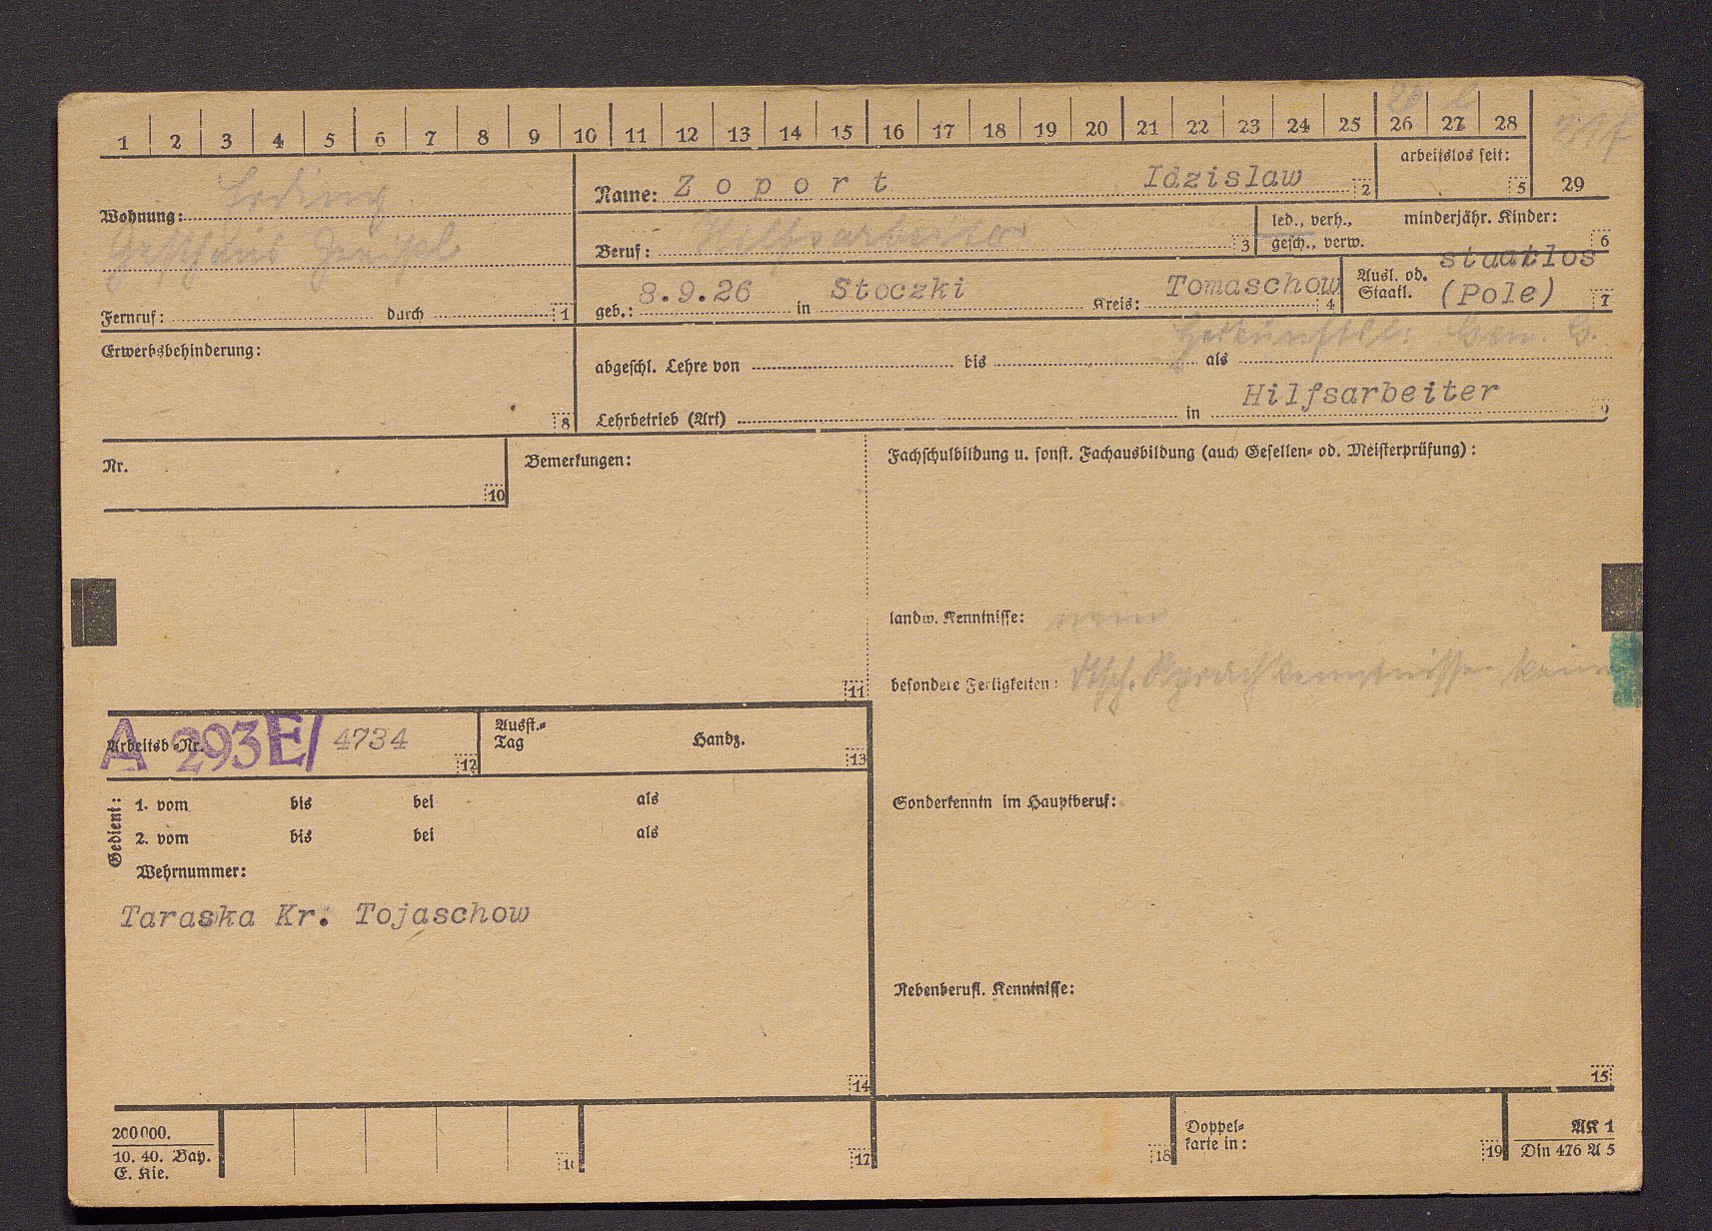 1 2 3 4 5 6 7 8 9 10 11 12 13 14 15 16 17 18 19 20 21 22 23 24 25 26 27 28
arbeitslos seit:
5 29
Wohnung: Erding.
Name: Zoport Idzislaw 2
Beruf: Hilfsarbeiter 3
led., verh., gesch., verw.
minderjähr. Kinder: 6
geb.: 8.9.26 in Stoczki Kreis: Tomaschow 4
Ausl. od. Staatl. staatlos (Pole) 7
Fernruf: durch 1
Erwerbsbehinderung: 8
abgeschl. Lehre von bis als
Lehrbetrieb (Art) in Hilfsarbeiter 9
Nr. 10
Bemerkungen: 11
Fachschulbildung u. sonst. Fachausbildung (auch Gesellen- od. Meisterprüfung):
landw. Kenntnisse: nein
besondere Fertigkeiten: dtsch. Sprachkenntnisse keine
Arbeitsb.-Nr. A 293E/ 4734 12
Ausst.-Tag Handz. 13
Gedient:
1. vom bis bei als
2. vom bis bei als
Wehrnummer:
Taraska Kr. Tojaschow
14
Sonderkenntn im Hauptberuf:
Nebenberufl. Kenntnisse:
15
200000.
10. 40. Bay.
E. Kie.
16 17 18
Doppelkarte in: 19
AK 1
Din 476 A 5